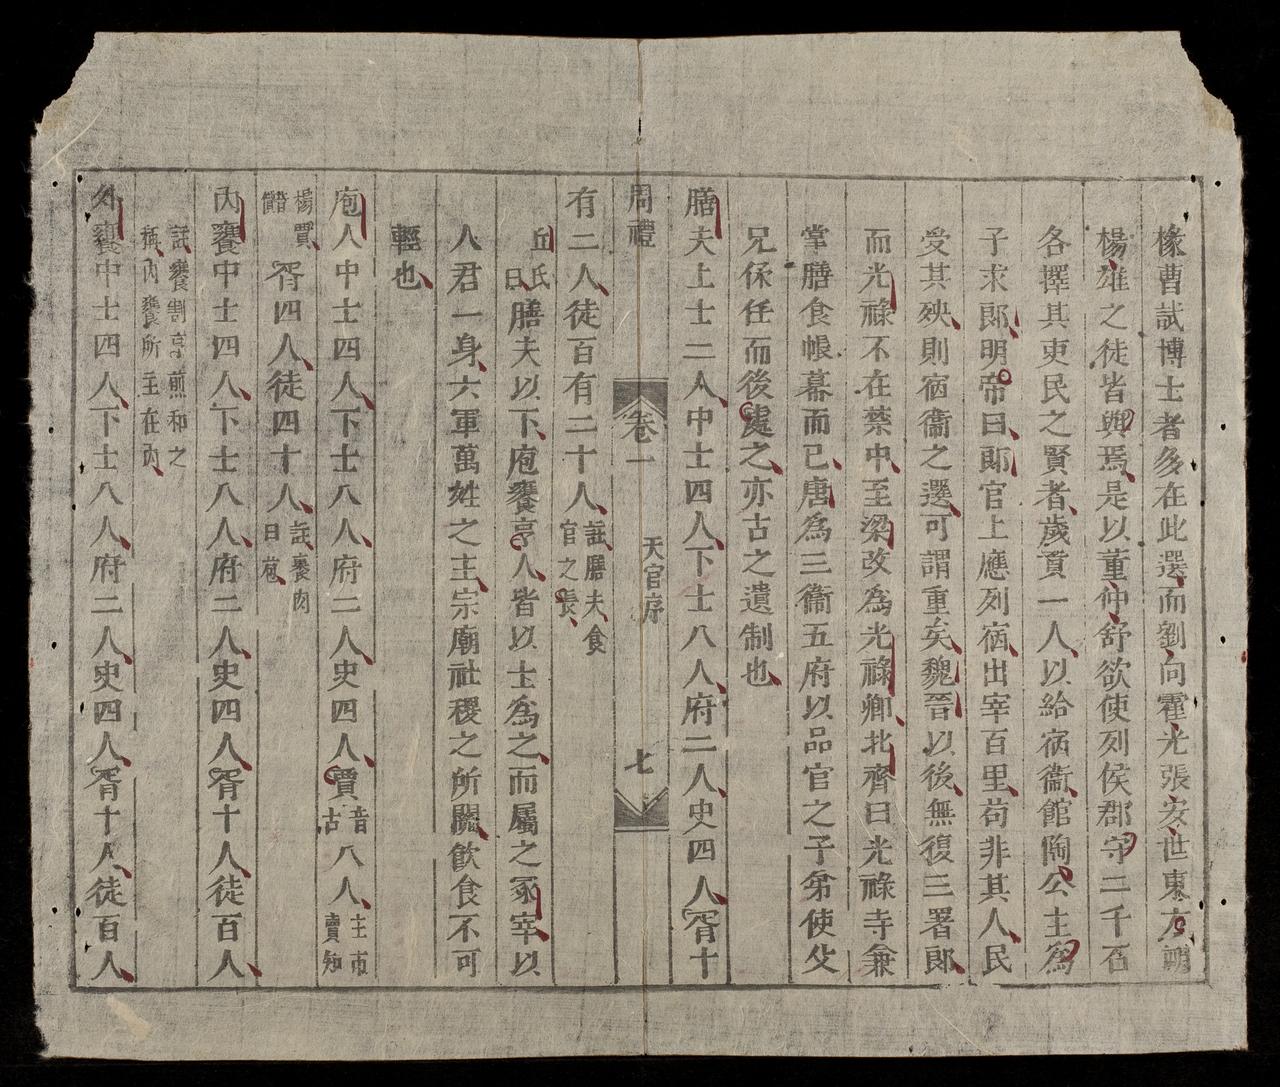 椽曹試博士者多在此選而劉向霍光張安世東方朔
楊雄之徒皆與焉是以董仲舒欲使列侯郡守二千石
各擇其吏民之賢者歲貢一人以給宿衞館陶公主為
子求郎明帝曰郎官上應列宿出宰百里苟非其人民
受其殃則宿衞之選可謂重矣魏晉以後無復三署郎
而光祿不在禁中至梁改為光祿卿北齊曰光祿寺兼
掌膳食帳幕而已唐為三衞五府以品官之子弟使父
兄保任而後處之亦古之遺制也
膳夫上士二人中士四人下士八人府二人史四人胥十
周禮 卷一 天官序 七
有二人徒百有二十人註膳夫食官之長
丘氏曰膳夫以下庖饔亨人皆以士為之而屬之冢宰以
人君一身六軍萬姓之主宗廟社稷之所關飲食不可
輕也
庖人中士四人下士八人府二人史四人賈音古八人主市賣知
楊賈胥四人徒四十人註裹肉曰苞
內饔中士四人下士八人府二人史四人胥十人徒百人
註饔割亨煎和之稱內饔所主在內
外饔中士四人下士八人府二人史四人胥十人徒百人